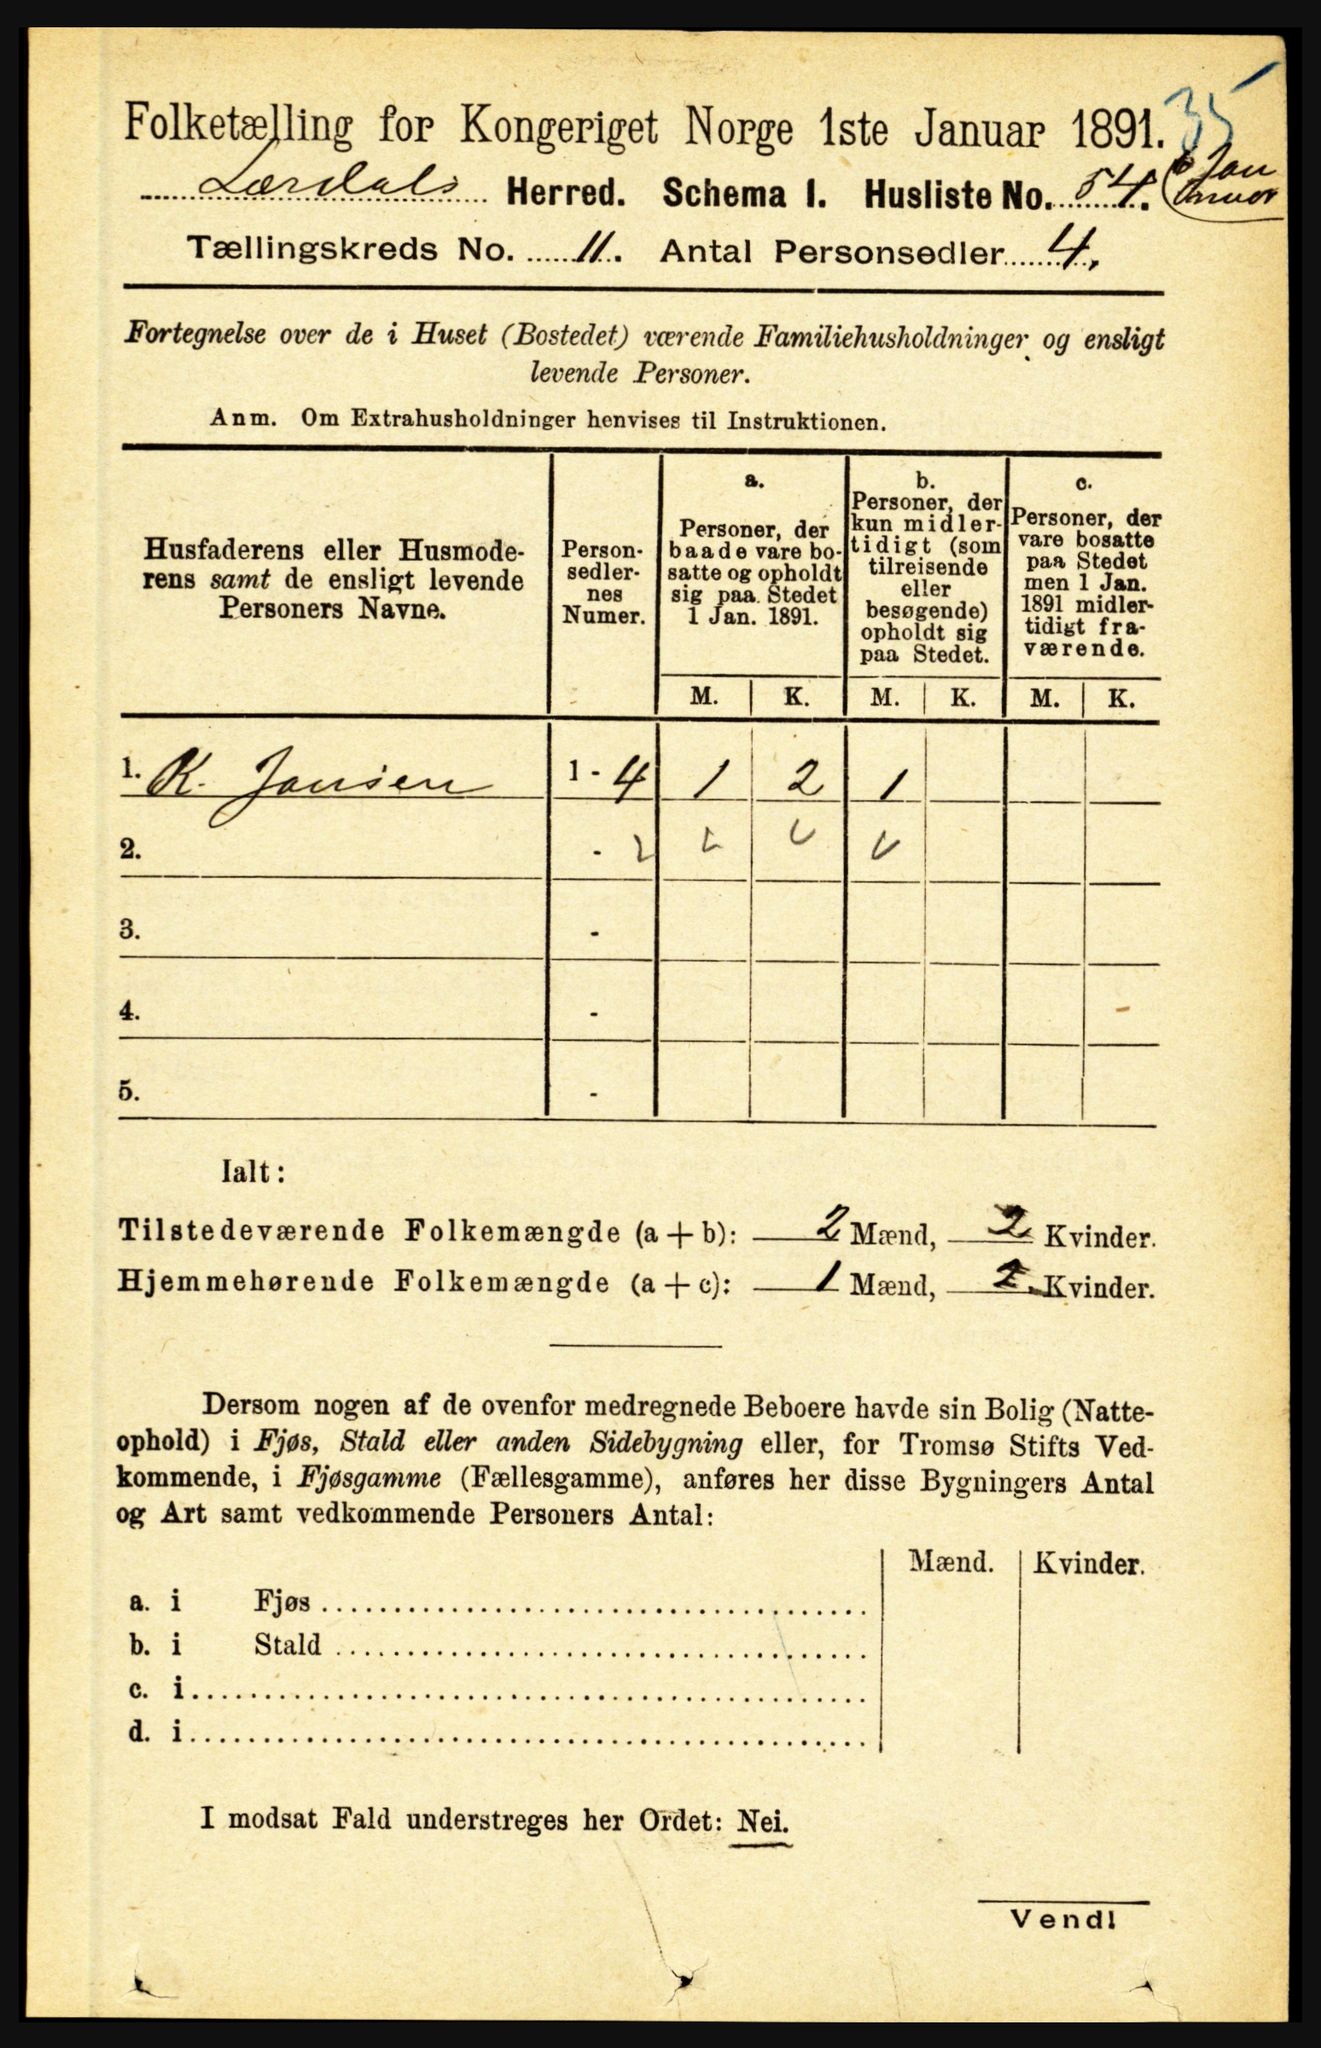 35
Folketælling for Kongeriget Norge 1ste Januar 1891.
Lærdals Herred. Schema I. Husliste No. 54.
Tællingskreds No. 11. Antal Personsedler 4.
Fortegnelse over de i Huset (Bostedet) værende Familiehusholdninger og ensligt
levende Personer.
Anm. Om Extrahusholdninger henvises til Instruktionen.
Husfaderens eller Husmode-
rens samt de ensligt levende
Personers Navne.
Person-
sedler-
nes
Numer.
a.
Personer, der
baade vare bo-
satte og opholdt
sig paa Stedet
1 Jan. 1891.
b.
Personer, der
kun midler-
tidigt (som
tilreisende
eller
besøgende)
opholdt sig
paa Stedet.
c.
Personer, der
vare bosatte
paa Stedet
men 1 Jan.
1891 midler-
tidigt fra-
værende.
M. K. M. K. M. K.
1. K. Jansen 1 - 4 1 2 1
2. -
3. -
4. -
5. -
Ialt:
Tilstedeværende Folkemængde (a + b): 2 Mænd, 2 Kvinder.
Hjemmehørende Folkemængde (a + c): 1 Mænd, 2 Kvinder.
Dersom nogen af de ovenfor medregnede Beboere havde sin Bolig (Natte-
ophold) i Fjøs, Stald eller anden Sidebygning eller, for Tromsø Stifts Ved-
kommende, i Fjøsgamme (Fællesgamme), anføres her disse Bygningers Antal
og Art samt vedkommende Personers Antal:
Mænd. Kvinder.
a. i Fjøs
b. i Stald
c. i
d. i
I modsat Fald understreges her Ordet: Nei.
Vendl